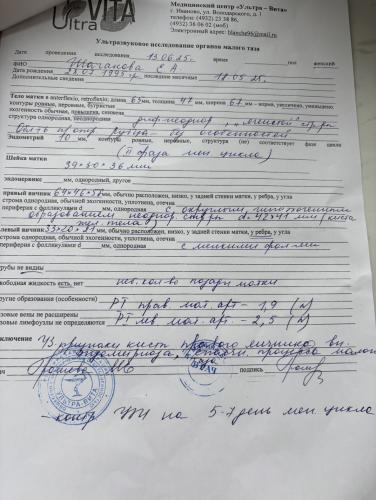 VITA
Ultra
Медицинский центр «Ультра – Вита»
г. Иваново, ул. Володарского, д. 1
телефону: (4932) 23 38 86,
(4932) 36 06 02 (моб)
Электронный адрес: blanche96@mail.ru
Ультразвуковое исследование органов малого таза
Дата проведения исследования 13.06.25. время пол женский
ФИО Е А
Дата рождения 1995 последние месячные 18.05.25.
Дополнительные сведения
Тело матки в anteflexio, retroflexio; длина мм, толщина 47 мм, ширина 67 мм – норма, увеличено, уменьшено,
контуры ровные, неровные, бугристые
эхогенность обычная, повышена, снижена
структура однородная, неоднородная
без особенностей
Эндометрий 10 мм, контуры ровные, неровные, структура (не) соответствует фазе цикла
(II фаза мен цикла)
Шейка матки
39×30×36 мм
эндоцервикс мм, однородный, другое
правый яичник 64×46×58 мм, обычно расположен, низко, у задней стенки матки, у ребра, у угла
строма однородная, обычной эхогенности, уплотнена, отечна
периферия с фолликулами d мм, однородная с округлым, гипоэхогенным
образованием неоднор структуры d= 42×41 мм (киста
жел тела)
левый яичник 33×20×21 мм, обычно расположен, низко, у задней стенки матки, у ребра, у угла
строма однородная, обычной эхогенности, уплотнена, отечна
периферия с фолликулами d мм, однородная с мелкими фол-ми
трубы не видны
свободная жидкость есть, нет неб. кол-во позади матки
другие образования (особенности) РТ прав мат. арт - 1,9 (N)
тазовые вены не расширены РТ лев мат. арт. - 2,5 (N)
тазовые лимфоузлы не определяются
заключение УЗ признаки кисты правого яичника
эндометриоза, спаечн. процесса малого
таза
врач подпись
УЛЬТРА-ВИТА
контр УЗИ на 5-7 день мен цикла